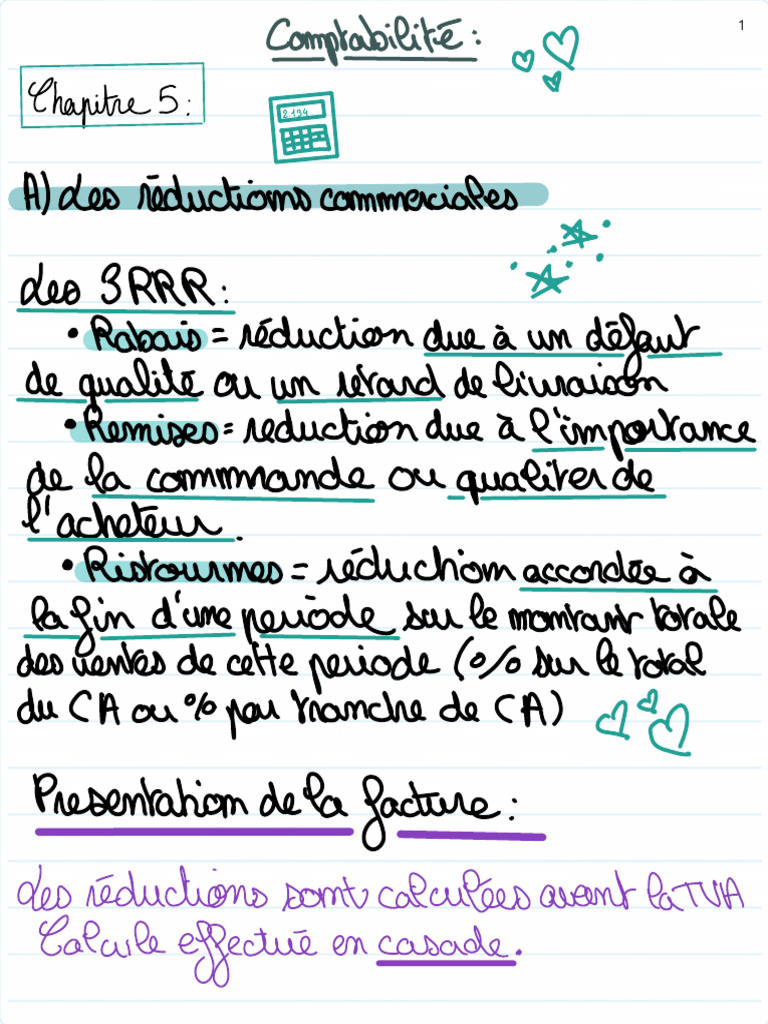 1
Comptabilité :
Chapitre 5 :
2194
A) Les réductions commerciales
Les 3RRR :
• Rabais = réduction due à un défaut
de qualité ou un retard de livraison
• Remises = reduction due à l'importance
de la commande ou qualiter de
l'acheteur.
• Ristournes = réduction accordée à
la fin d'une periode sur le montant totale
des ventes de cette periode (% sur le total
du CA ou % par tranche de CA)
Presentation de la facture :
Les réductions sont calculées avant la TVA
Calcule effectué en casade.